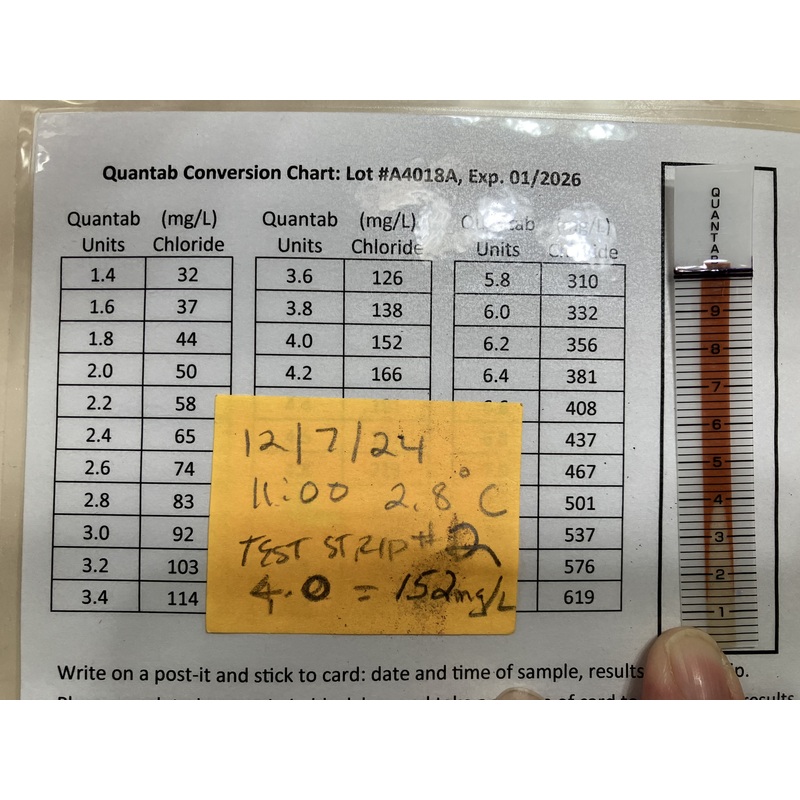 Quantab Conversion Chart: Lot #A4018A, Exp. 01/2026
Quantab Units (mg/L) Chloride
1.4 32
1.6 37
1.8 44
2.0 50
2.2 58
2.4 65
2.6 74
2.8 83
3.0 92
3.2 103
3.4 114
Quantab Units (mg/L) Chloride
3.6 126
3.8 138
4.0 152
4.2 166
Units
5.8 310
6.0 332
6.2 356
6.4 381
408
437
467
501
537
576
619
12/7/24
11:00 2.8°C
TEST STRIP #2
4.0 = 152mg/L
QUANTAB
9
8
7
6
5
4
3
2
1
Write on a post-it and stick to card: date and time of sample, results